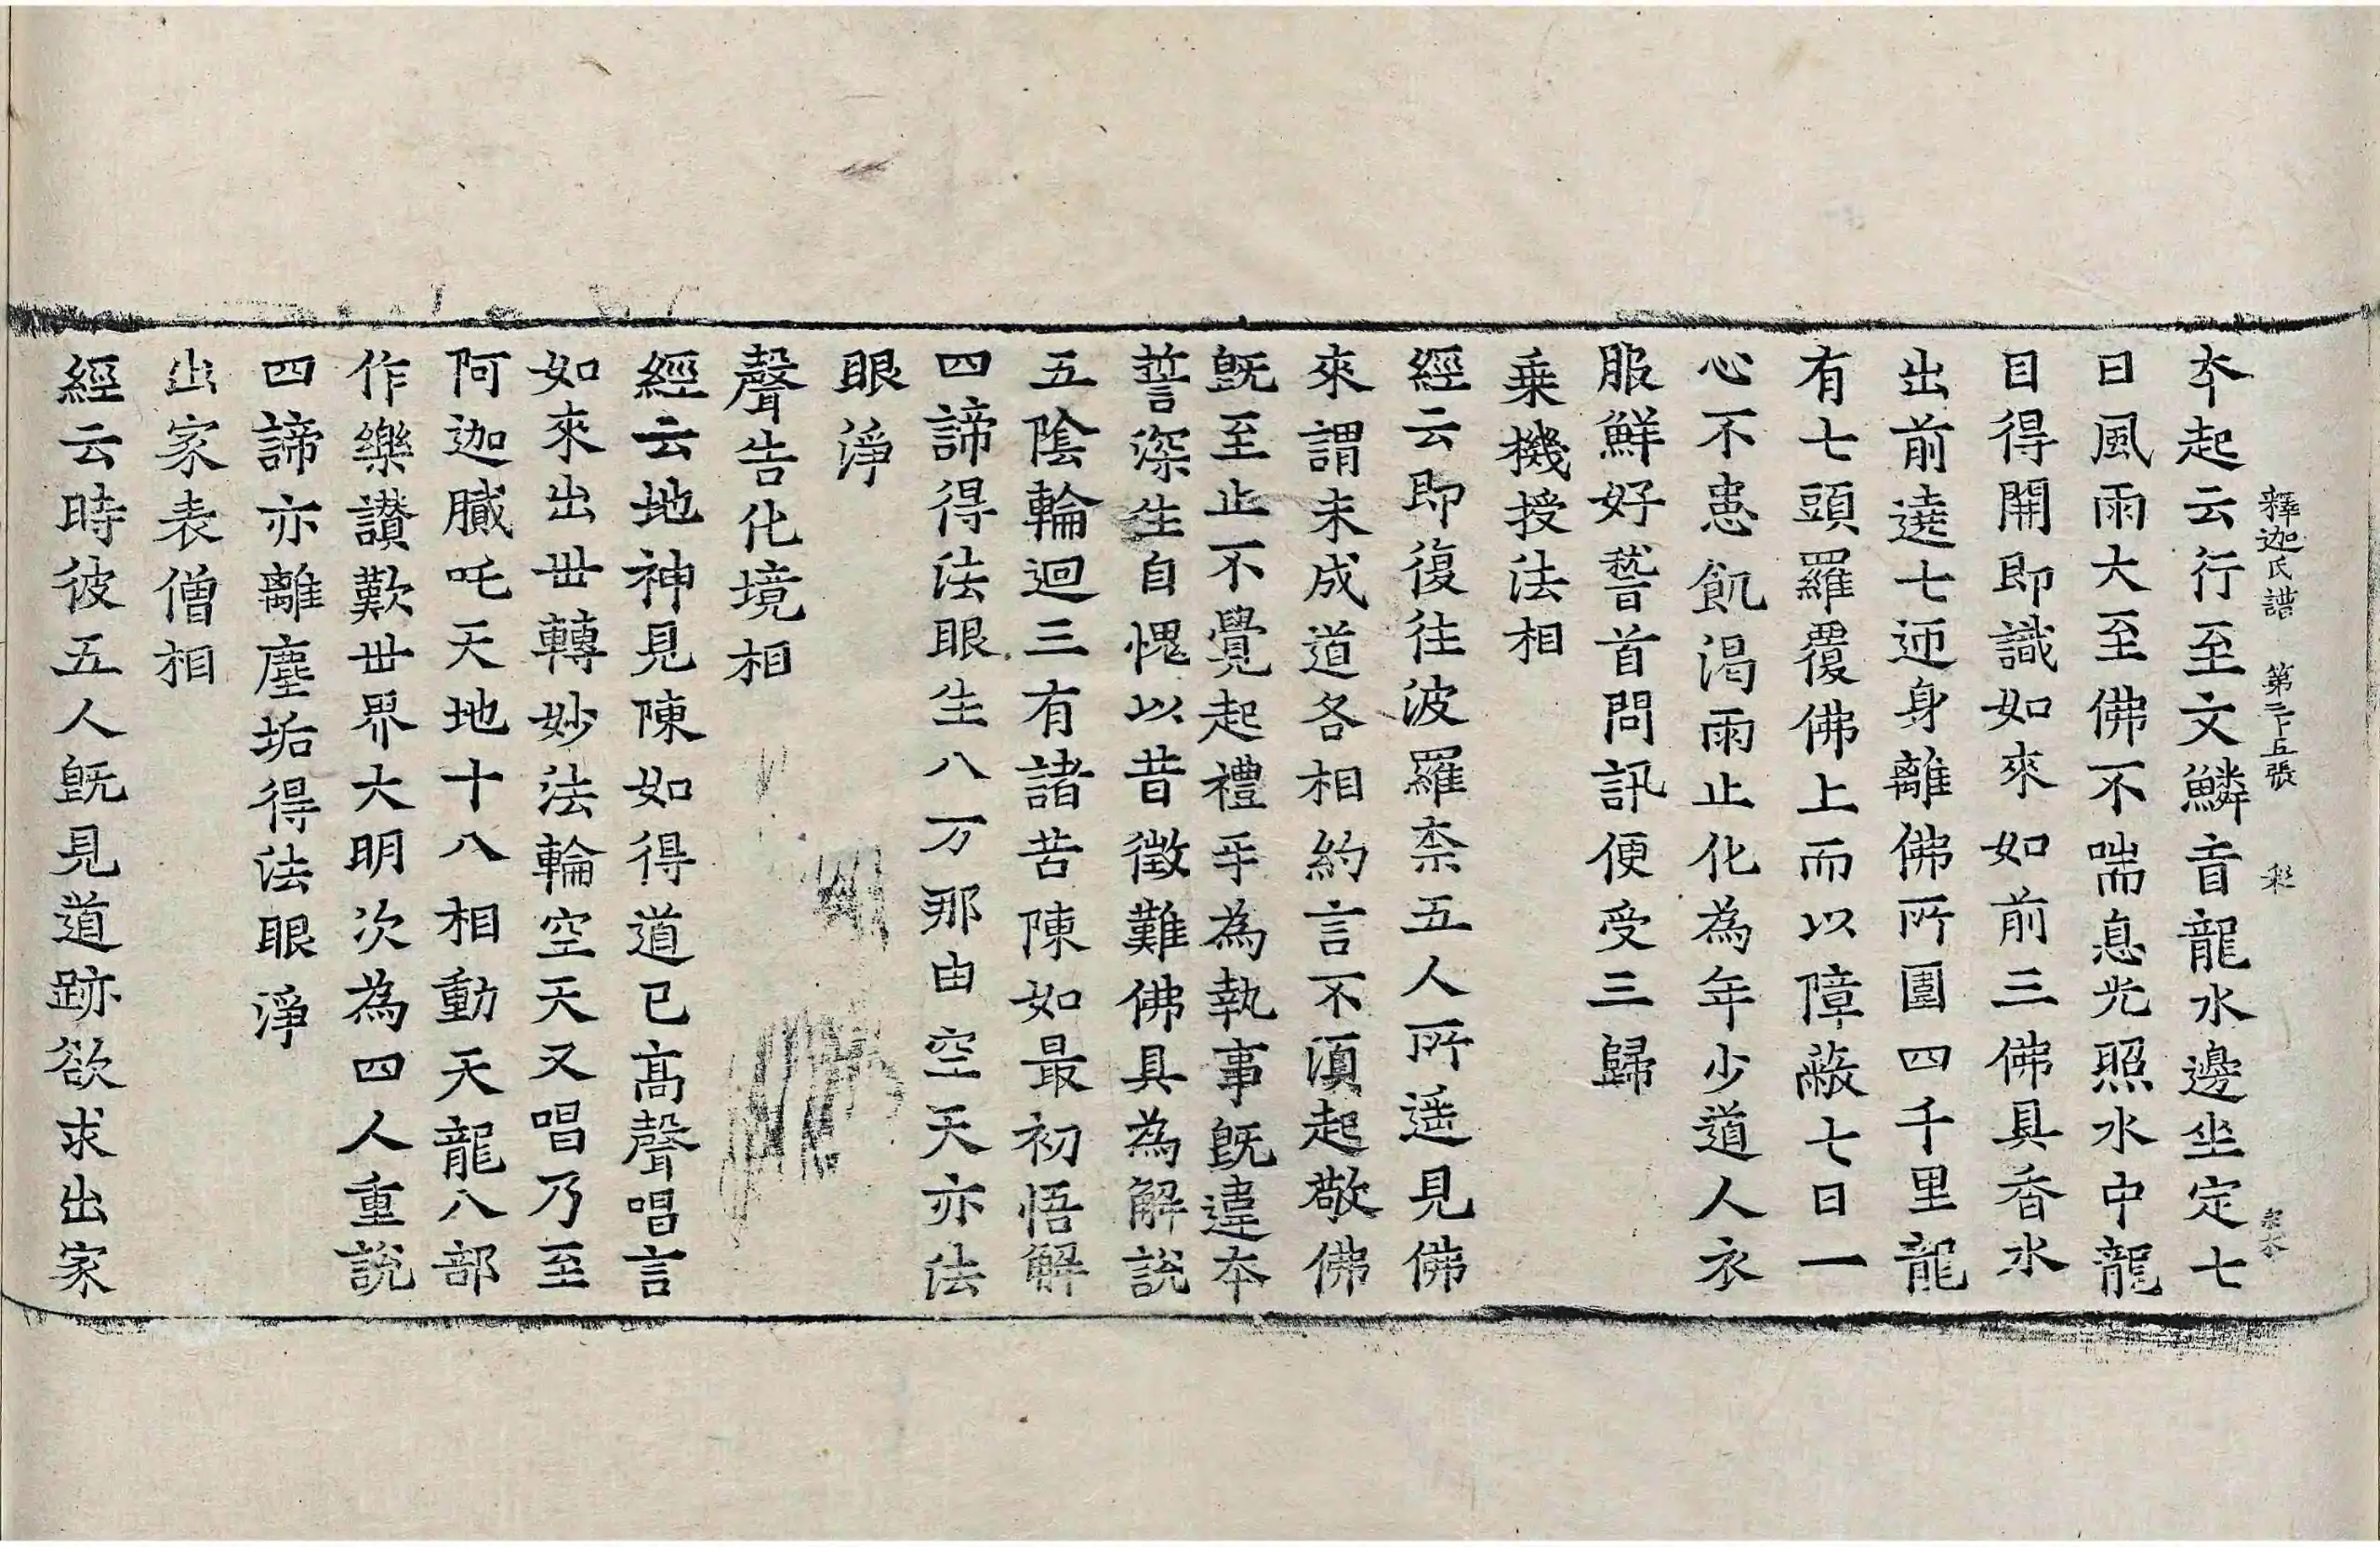 釋迦氏譜 第二十五張 彩
本起云行至文鱗盲龍水邊坐定七
日風雨大至佛不喘息光照水中龍
目得開即識如來如前三佛具香水
出前遶七迊身離佛所圍四千里龍
有七頭羅覆佛上而以障蔽七日一
心不患飢渴雨止化為年少道人衣
服鮮好稽首問訊便受三歸
乗機授法相
經云即復往波羅柰五人所遥見佛
來謂未成道各相約言不湏起敬佛
旣至止不覺起禮乎為執事旣違本
誓深生自愧以昔徵難佛具為解說
五陰輪迴三有諸苦陳如最初悟解
四諦得法眼生八万那由空天亦法
眼淨
聲告化境相
經云地神見陳如得道已高聲唱言
如來出丗轉妙法輪空天又唱乃至
阿迦膩吒天地十八相動天龍八部
作樂讃歎丗界大明次為四人重說
四諦亦離塵垢得法眼淨
出家表僧相
經云時彼五人旣見道跡欲求出家